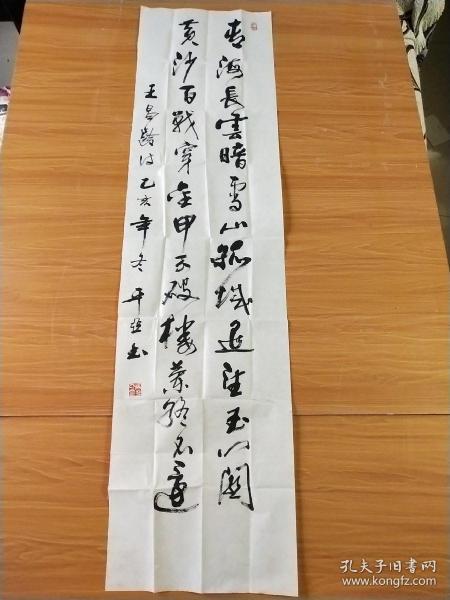 青海長雲暗雪山孤城遥望玉门關
黄沙百戰穿金甲不破樓蘭终不還
王昌齡诗乙亥年冬平书
孔夫子旧书网
www.kongfz.com